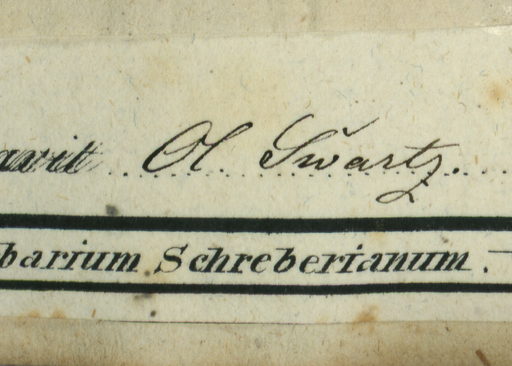 avit Ol. Swartz.
barium Schreberianum.